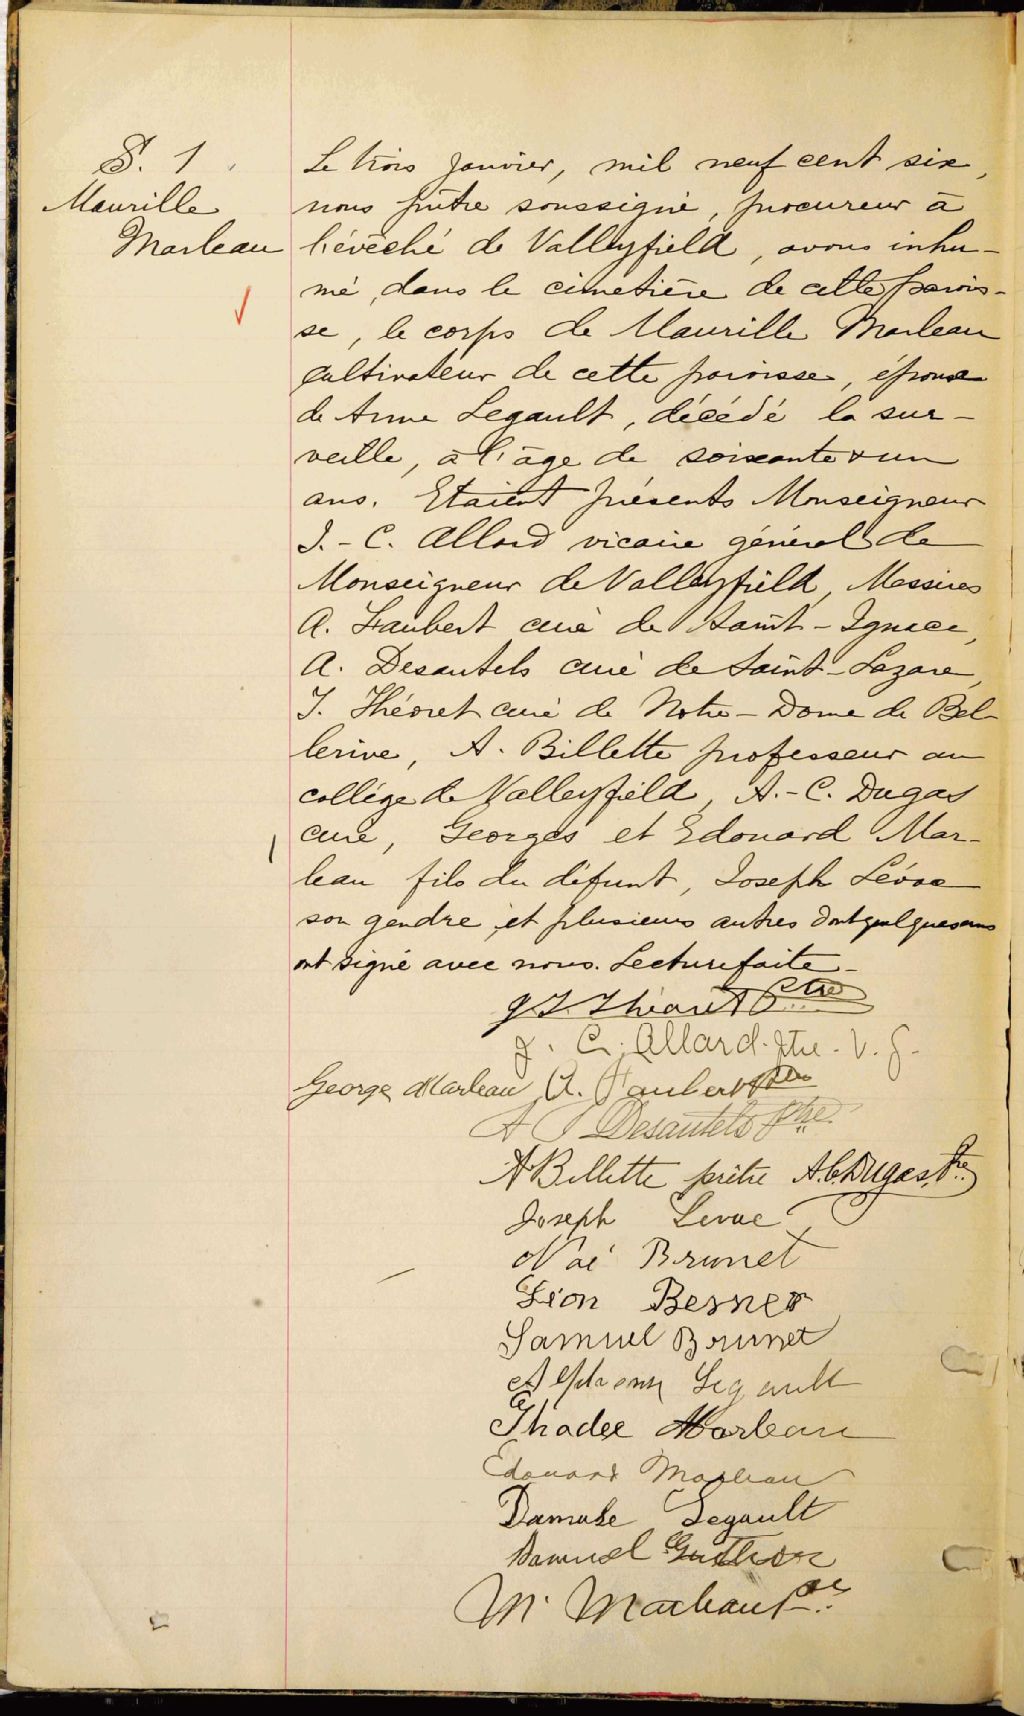 S. 1
Maurille
Marleau
Le trois janvier, mil neuf cent six,
nous prêtre soussigné, procureur à
l'évêché de Valleyfield, avons inhu-
mé, dans le cimetière de cette parois-
se, le corps de Maurille Marleau
cultivateur de cette paroisse, époux
de Anne Legault, décédé la sur-
veille, à l'âge de soixante & un
ans. Etaient présents Monseigneur
J.-C. Allard vicaire général de
Monseigneur de Valleyfield, Messires
A. Haubert curé de Saint-Ignace,
A. Desautels curé de Saint-Lazare,
J. Théoret curé de Notre-Dame de Bel-
lerive, A. Billette professeur au
collège de Valleyfield, A.-C. Dugas
curé, Georges et Edouard Mar-
leau fils du défunt, Joseph Lévac
son gendre, et plusieurs autres dont quelques uns
ont signé avec nous. Lecture faite-
J. T. Théoret Ptre
J. C. Allard. ptre. V. G.
George Marleau A. Haubert ptre
A Desautels ptre
A Billette prêtre A.C. Dugas, Ptre
Joseph Levac
Noé Brunet
Léon Besner
Samuel Brunet
Alphonse Legault
Thadee Marleau
Edouard Marleau
Damase Legault
Samuel
M. Marleau